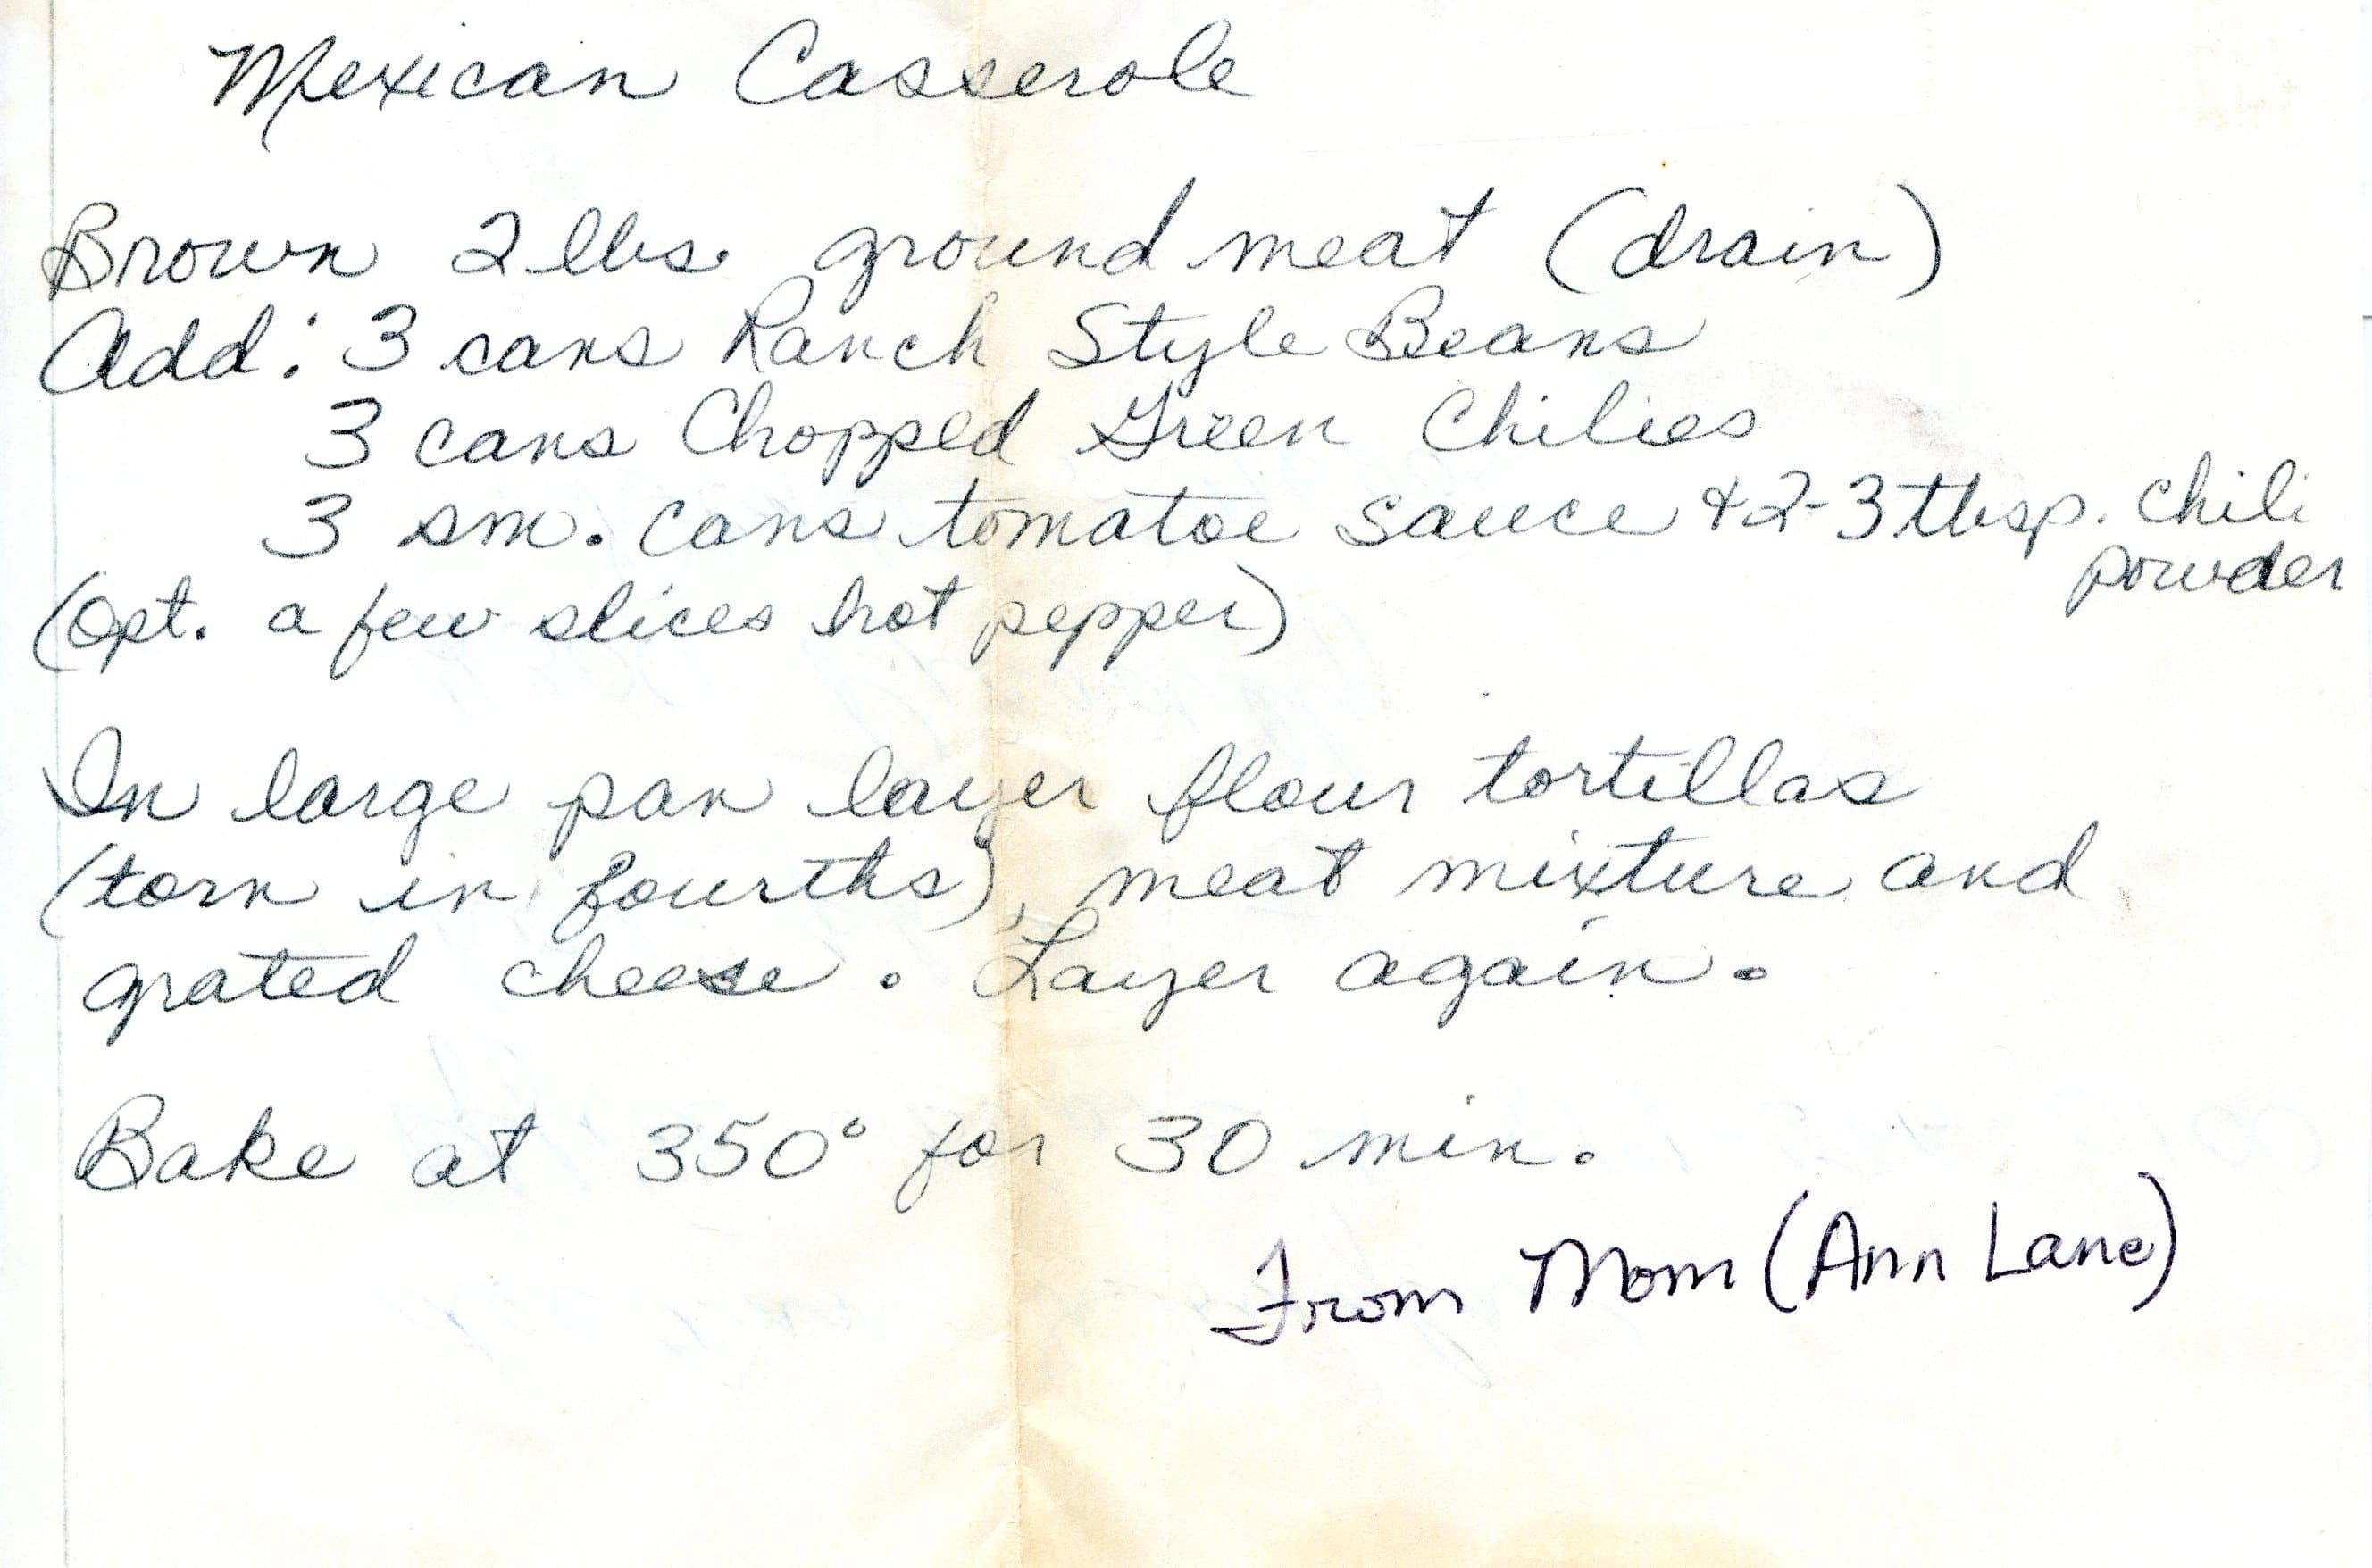 Mexican Casserole
Brown 2 lbs. ground meat (drain)
Add: 3 cans Ranch Style Beans
3 cans Chopped Green Chilies
3 sm. cans tomatoe sauce + 2-3 tbsp. chili
powder
(Opt. a few slices hot pepper)
In large pan layer flour tortillas
(torn in fourths), meat mixture and
grated cheese. Layer again.
Bake at 350° for 30 min.
From Mom (Ann Lane)